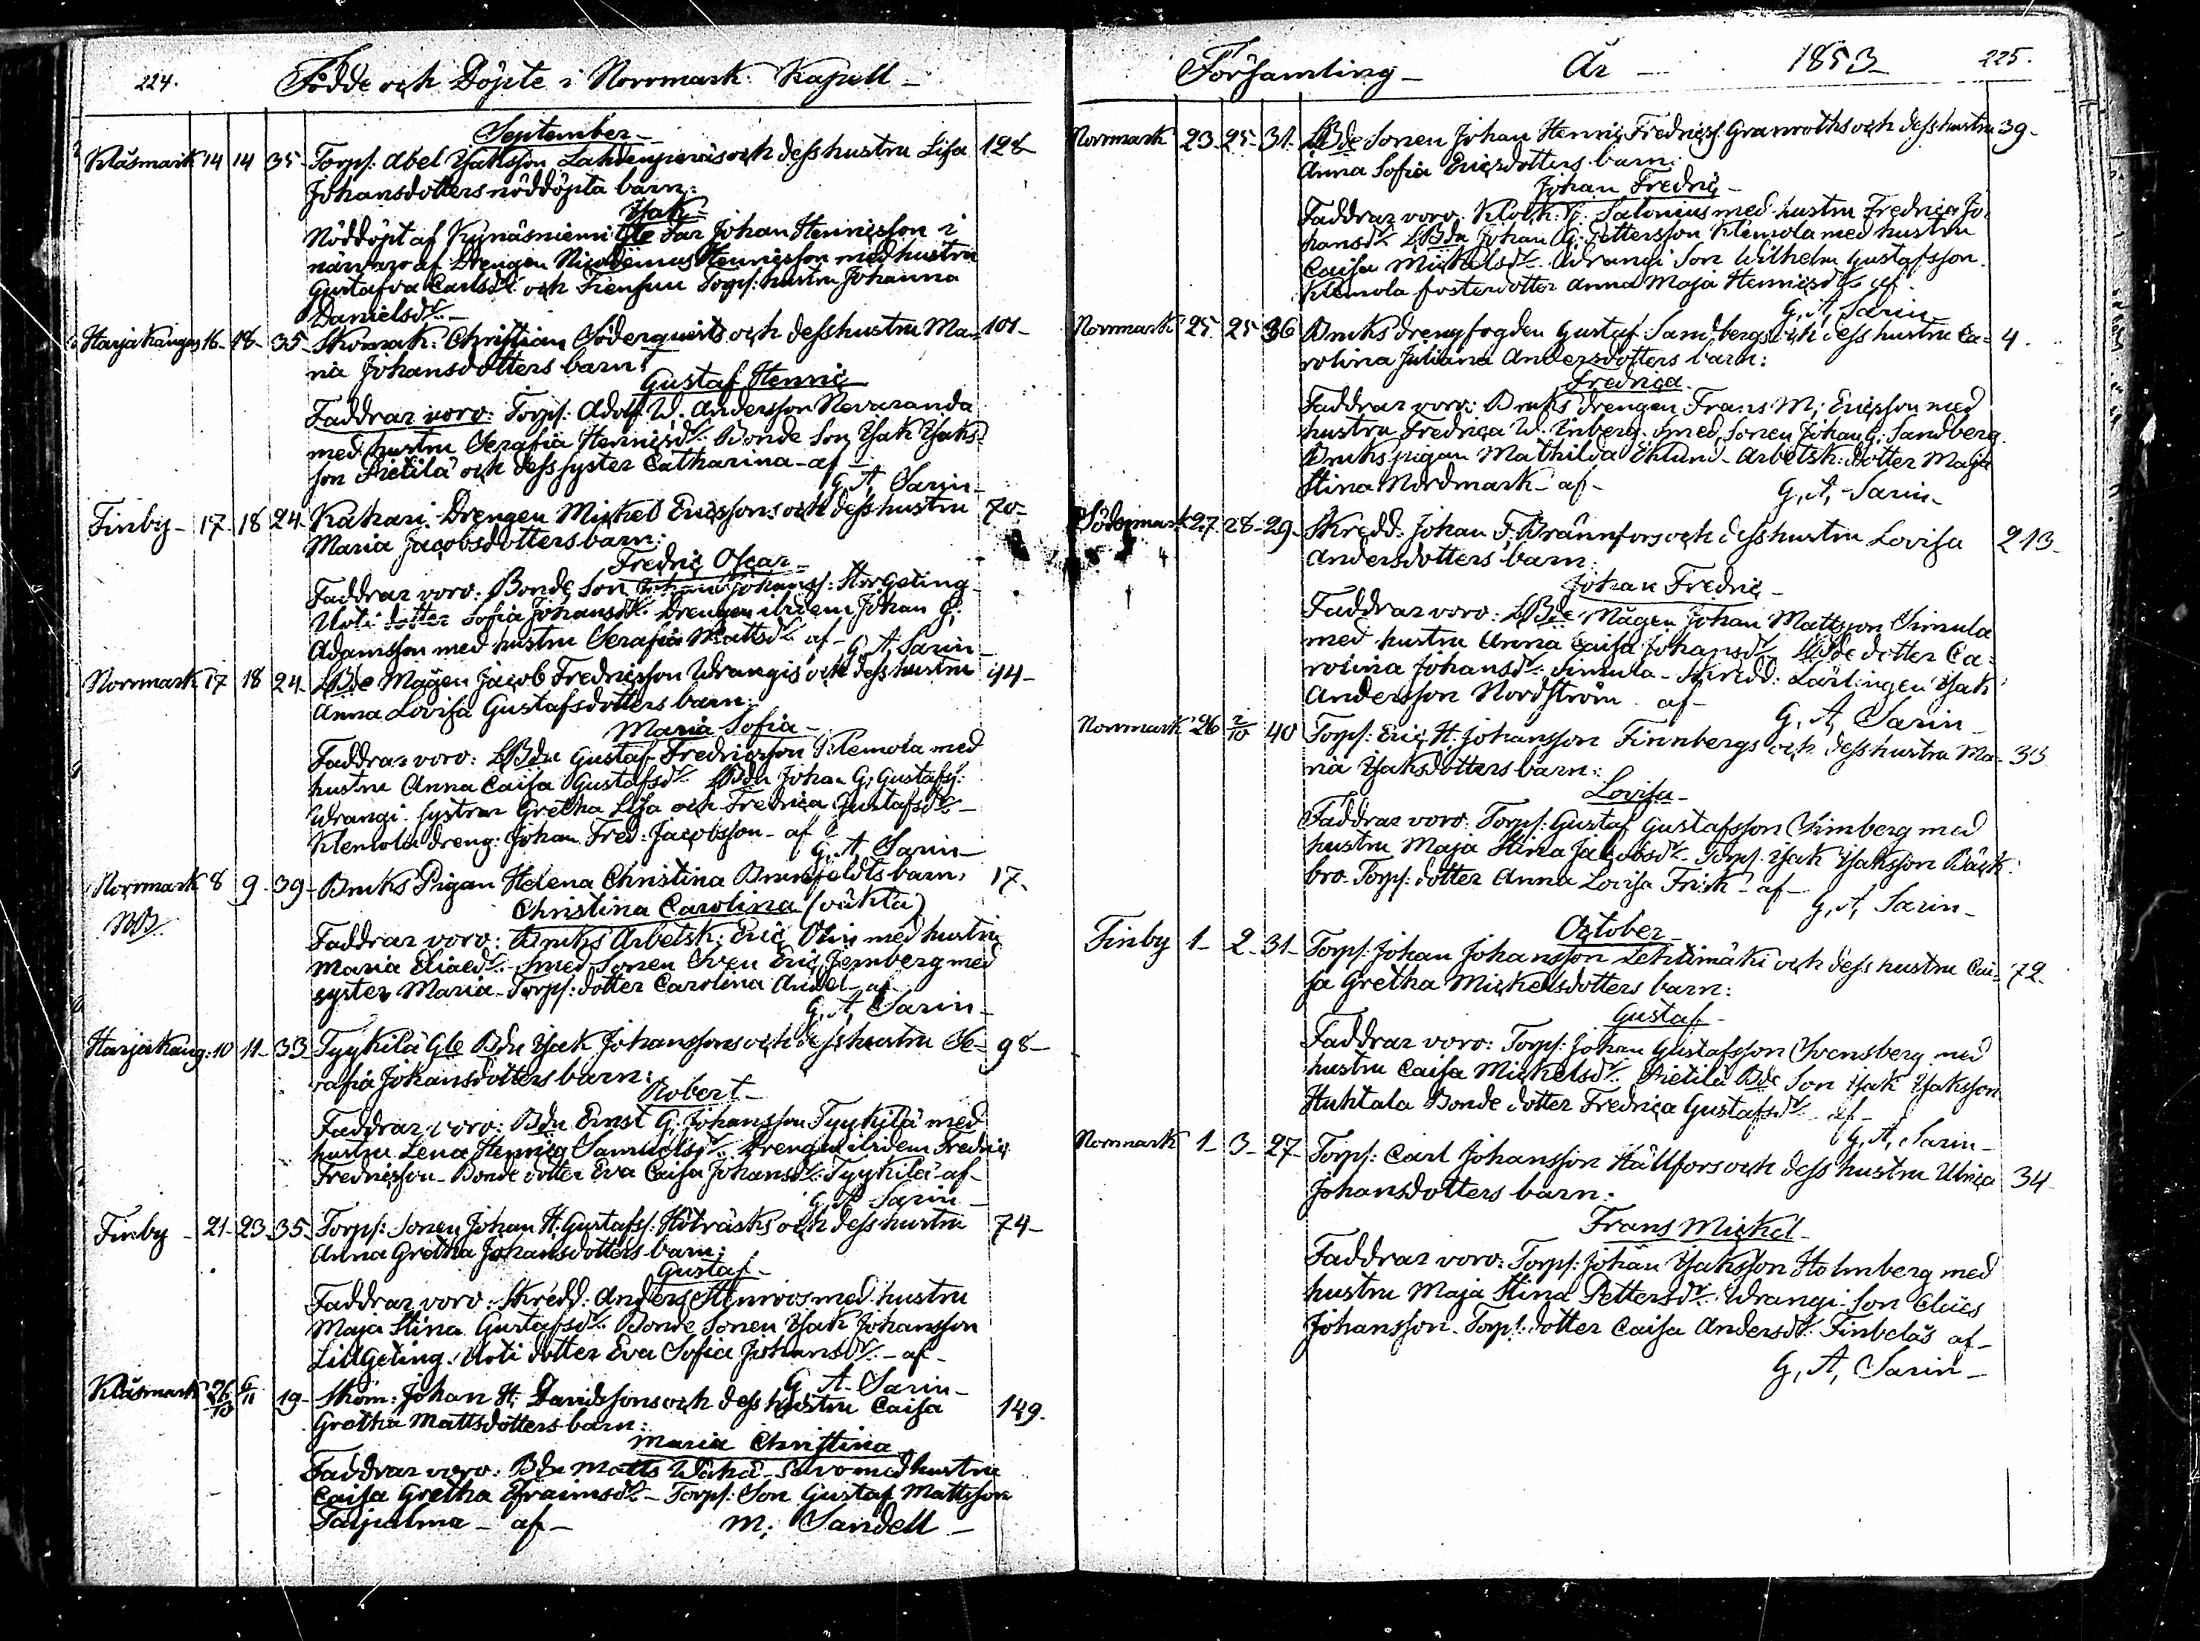 224.
Födde och Döpte i Norrmark Kapell –
September –
Klåsmark 14 14 35 Torp: Abel Isaksson Lahdenperäs och dess hustru Lisa 128
Johansdotters nöddöpta barn:
Isak –
Nöddöpt af Kynäsniemi Gle Far Johan Henricsson i
närvaro af Drengen Nicodemus Henricsson med hustru
Gustafva Carlsdr. och Torp: hustru Johanna
Danielsdr. –
Harjakangas 16 – 18 – 35 – Skomak: Christian Söderquists och dess hustru Ma- 101 –
ria Johansdotters barn:
Gustaf Henric
Faddrar voro: Torp: Adolf W. Andersson Nevaranda
med hustru Serafia Henricsdr. Bonde Son Isak Isaks-
son Pietilä och dess syster Catharina – af –
G. A. Sarin –
Finby – 17 – 18 24 – Kahari Drengen Mickel Ericssons och dess hustru 70 –
Maria Jacobsdotters barn:
Fredric Oscar –
Faddrar voro: Bonde Son Johan Johanss: Storgeting
Uoti dotter Sofia Johansdr. Drengen ibidem Johan G.
Adamsson med hustru Serafia Mattsdr. af – G. A. Sarin –
Norrmark 17 18 24 – LBde Mågen Jacob Fredricsson Wrangis och dess hustru 44 –
Anna Lovisa Gustafsdotters barn:
Maria Sofia –
Faddrar voro: LBdn Gustaf Fredricsson Klemola med
hustru Anna Caisa Gustafsdr. LBdn Johan G. Gustafss:
Wrangi – systrar Gretha Lisa och Fredrica Gustafsdr. –
Klemola dreng: Johan Fred: Jacobsson – af –
G. A. Sarin –
Norrmark 8 9 – 39 – Bruks Pigan Helena Christina barn, 17 –
NB.
Christina Carolina (oäkta)
Faddrar voro: Bruks Arbetsk: Eric med hustru
Maria Eliaedr. – Smed Sonen Sven Eric Jernberg med
syster Maria – Torp: dotter Carolina – af –
G. A. Sarin –
Harjakang: 10 11 – 33 Tyykilä Gle Bdn Isak Johanssons och dess hustru Se- 98 –
rafia Johansdotters barn:
Robert –
Faddrar voro: Bdn Ernst G. Johansson Tyykilä med
hustru Lena Henrica Samuelsdr. Drengen ibidem Fredric
Fredricsson – Bonde dotter Eva Caisa Johansdr. Tyykilä – af –
G. A. Sarin –
Finby – 21 – 23 – 35 – Torp: Sonen Johan H. Gustafss: Höträsks och dess hustru 74 –
Anna Gretha Johansdotters barn:
Gustaf –
Faddrar voro: Skredd: Anders Stenroos med hustru
Maja Stina Gustafsdr. Bonde Sonen Isak Johansson
Lillgeting. Uoti dotter Eva Sofia Johansdr. – af –
G. A. Sarin –
Klåsmark 26/10 6/11 19 – Skom: Johan H. Davidssons och dess hustru Caisa 149.
Gretha Mattsdotters barn:
Maria Christina
Faddrar voro: Bdn Matts Wähä-Savo med hustru
Caisa Gretha Efraimsdr. – Torp: Son Gustaf Mattsson
Taipalma – af – M. Sandell –
Församling – År – 1853 – 225.
Norrmark 23 25 – 31 – LBde Sonen Johan Henric Fredricss: Granroths och dess hustru 39 –
Anna Sofia Ericsdotters barn:
Johan Fredric –
Faddrar voro: Klock: Salonius med hustru Fredrica Jo-
hansdr. LBdn Johan G. Pettersson Klemola med hustru
Caisa Mickelsdr. Wrangi Son Wilhelm Gustafsson.
Klemola fosterdotter Anna Maja Henricsdr. – af –
G. A. Sarin –
Norrmark 25 25 36 Bruks drengfogden Gustaf Sandbergs och dess hustru Ca- 4.
rolina Juliana Andersdotters barn:
Fredrica
Faddrar voro: Bruks drengen Frans M. Ericsson med
hustru Fredrica W. Inberg. Smed Sonen Johan G. Sandberg.
Bruks pigan Mathilda Eklund – Arbetsk: dotter Maja
Stina Nordmark – af –
G. A. Sarin –
Södermark 27 28 – 29 – Skredd: Johan F. Brännfors och dess hustru Lovisa 213 –
Andersdotters barn:
Johan Fredric –
Faddrar voro: LBde Mågen Johan Mattsson Simula
med hustru Anna Caisa Johansdr. LBde dotter Ca-
rolina Johansdr. Simula – Skredd: Lärlingen Isak
Andersson Nordström – af –
G. A. Sarin –
Norrmark 26 2/10 40 Torp: Eric H. Johansson Finnbergs och dess hustru Ma- 35
ria Isaksdotters barn:
Lovisa –
Faddrar voro: Torp: Gustaf Gustafsson Simberg med
hustru Maja Stina Jacobsdr. – Torp: Isak Isaksson Bäck-
bro. Torp: dotter Anna Lovisa Frisk – af –
G. A. Sarin –
October –
Finby 1 – 2 – 31 – Torp: Johan Johansson Lehtimäki och dess hustru Cai- 72 –
sa Gretha Mickelsdotters barn:
Gustaf –
Faddrar voro: Torp: Johan Gustafsson Svensberg med
hustru Caisa Mickelsdr. Pietilä Bde Son Isak Isaksson
Huhtala Bonde dotter Fredrica Gustafsdr. af –
G. A. Sarin –
Norrmark 1 – 3 – 27 – Torp: Carl Johansson Hällfors och dess hustru Ulrica 34
Johansdotters barn:
Frans Mickel –
Faddrar voro: Torp: Johan Isaksson Holmberg med
hustru Maja Stina Pettersdr. Wrangi Son
Johansson. Torp: dotter Caisa Andersdr. Finbelås af –
G. A. Sarin –